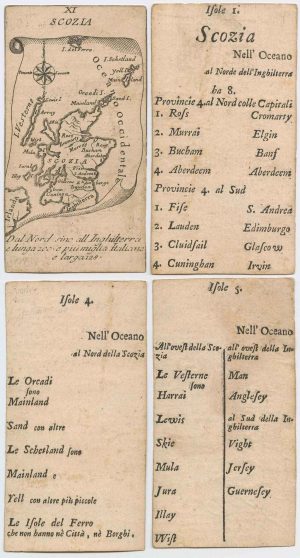 XI
SCOZIA
I. del Ferro
I. Schetland
Yell
Mainland
Orcadi I.
Mainland
Lewis I.
Oceano
Occidentale
I. Vesterne
Ross
Murrai
Bucham
Aberdeem
SCOZIA
Irlanda
Dal Nord sino all Inghilterra
e lunga 200 e più miglia Italiane
e larga 185
Isole 1.
Scozia
Nell' Oceano
al Norde dell'Inghilterra
ha 8.
Provincie 4. al Nord colle Capitali
1. Ross Cromarty
2. Murrai Elgin
3. Bucham Banf
4. Aberdeem Aberdeem
Provincie 4. al Sud
1. Fife S. Andrea
2. Lauden Edimburgo
3. Cluidsail Glascow
4. Cuningham Irvin
Isole 4.
Nell' Oceano
al Nord della Scozia
Le Orcadi
sono
Mainland
Sand con altre
Le Schetland sono
Mainland e
Yell con altre più piccole
Le Isole del Ferro
che non hanno nè Città, nè Borghi.
Isole 5.
Nell' Oceano
All'ovest della Scozia
Le Vesterne
sono
Harrai
Lewis
Skie
Mula
Jura
Illay
Wist
all'ovest della Inghilterra
Man
Anglesey
al Sud della Inghilterra
Vight
Jersey
Guernesey